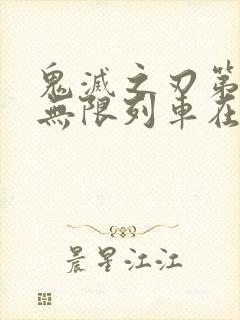 鬼滅之刃第
無限列車在
晨星江江